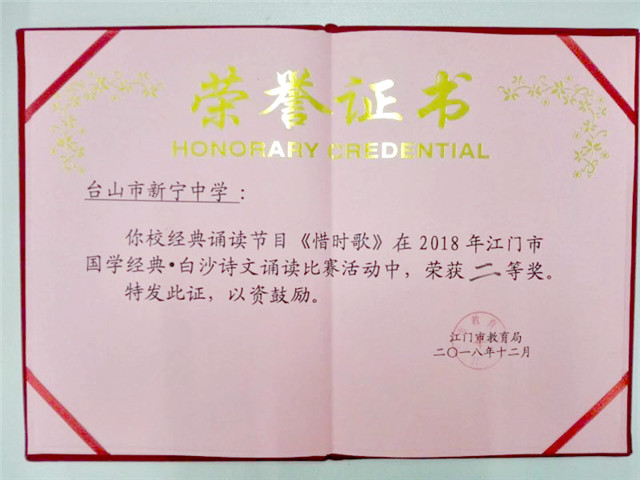 荣誉证书
HONORARY CREDENTIAL
台山市新宁中学：
你校经典诵读节目《惜时歌》在2018年江门市
国学经典•白沙诗文诵读比赛活动中，荣获二等奖。
特发此证，以资鼓励。
江门市教育局
二〇一八年十二月